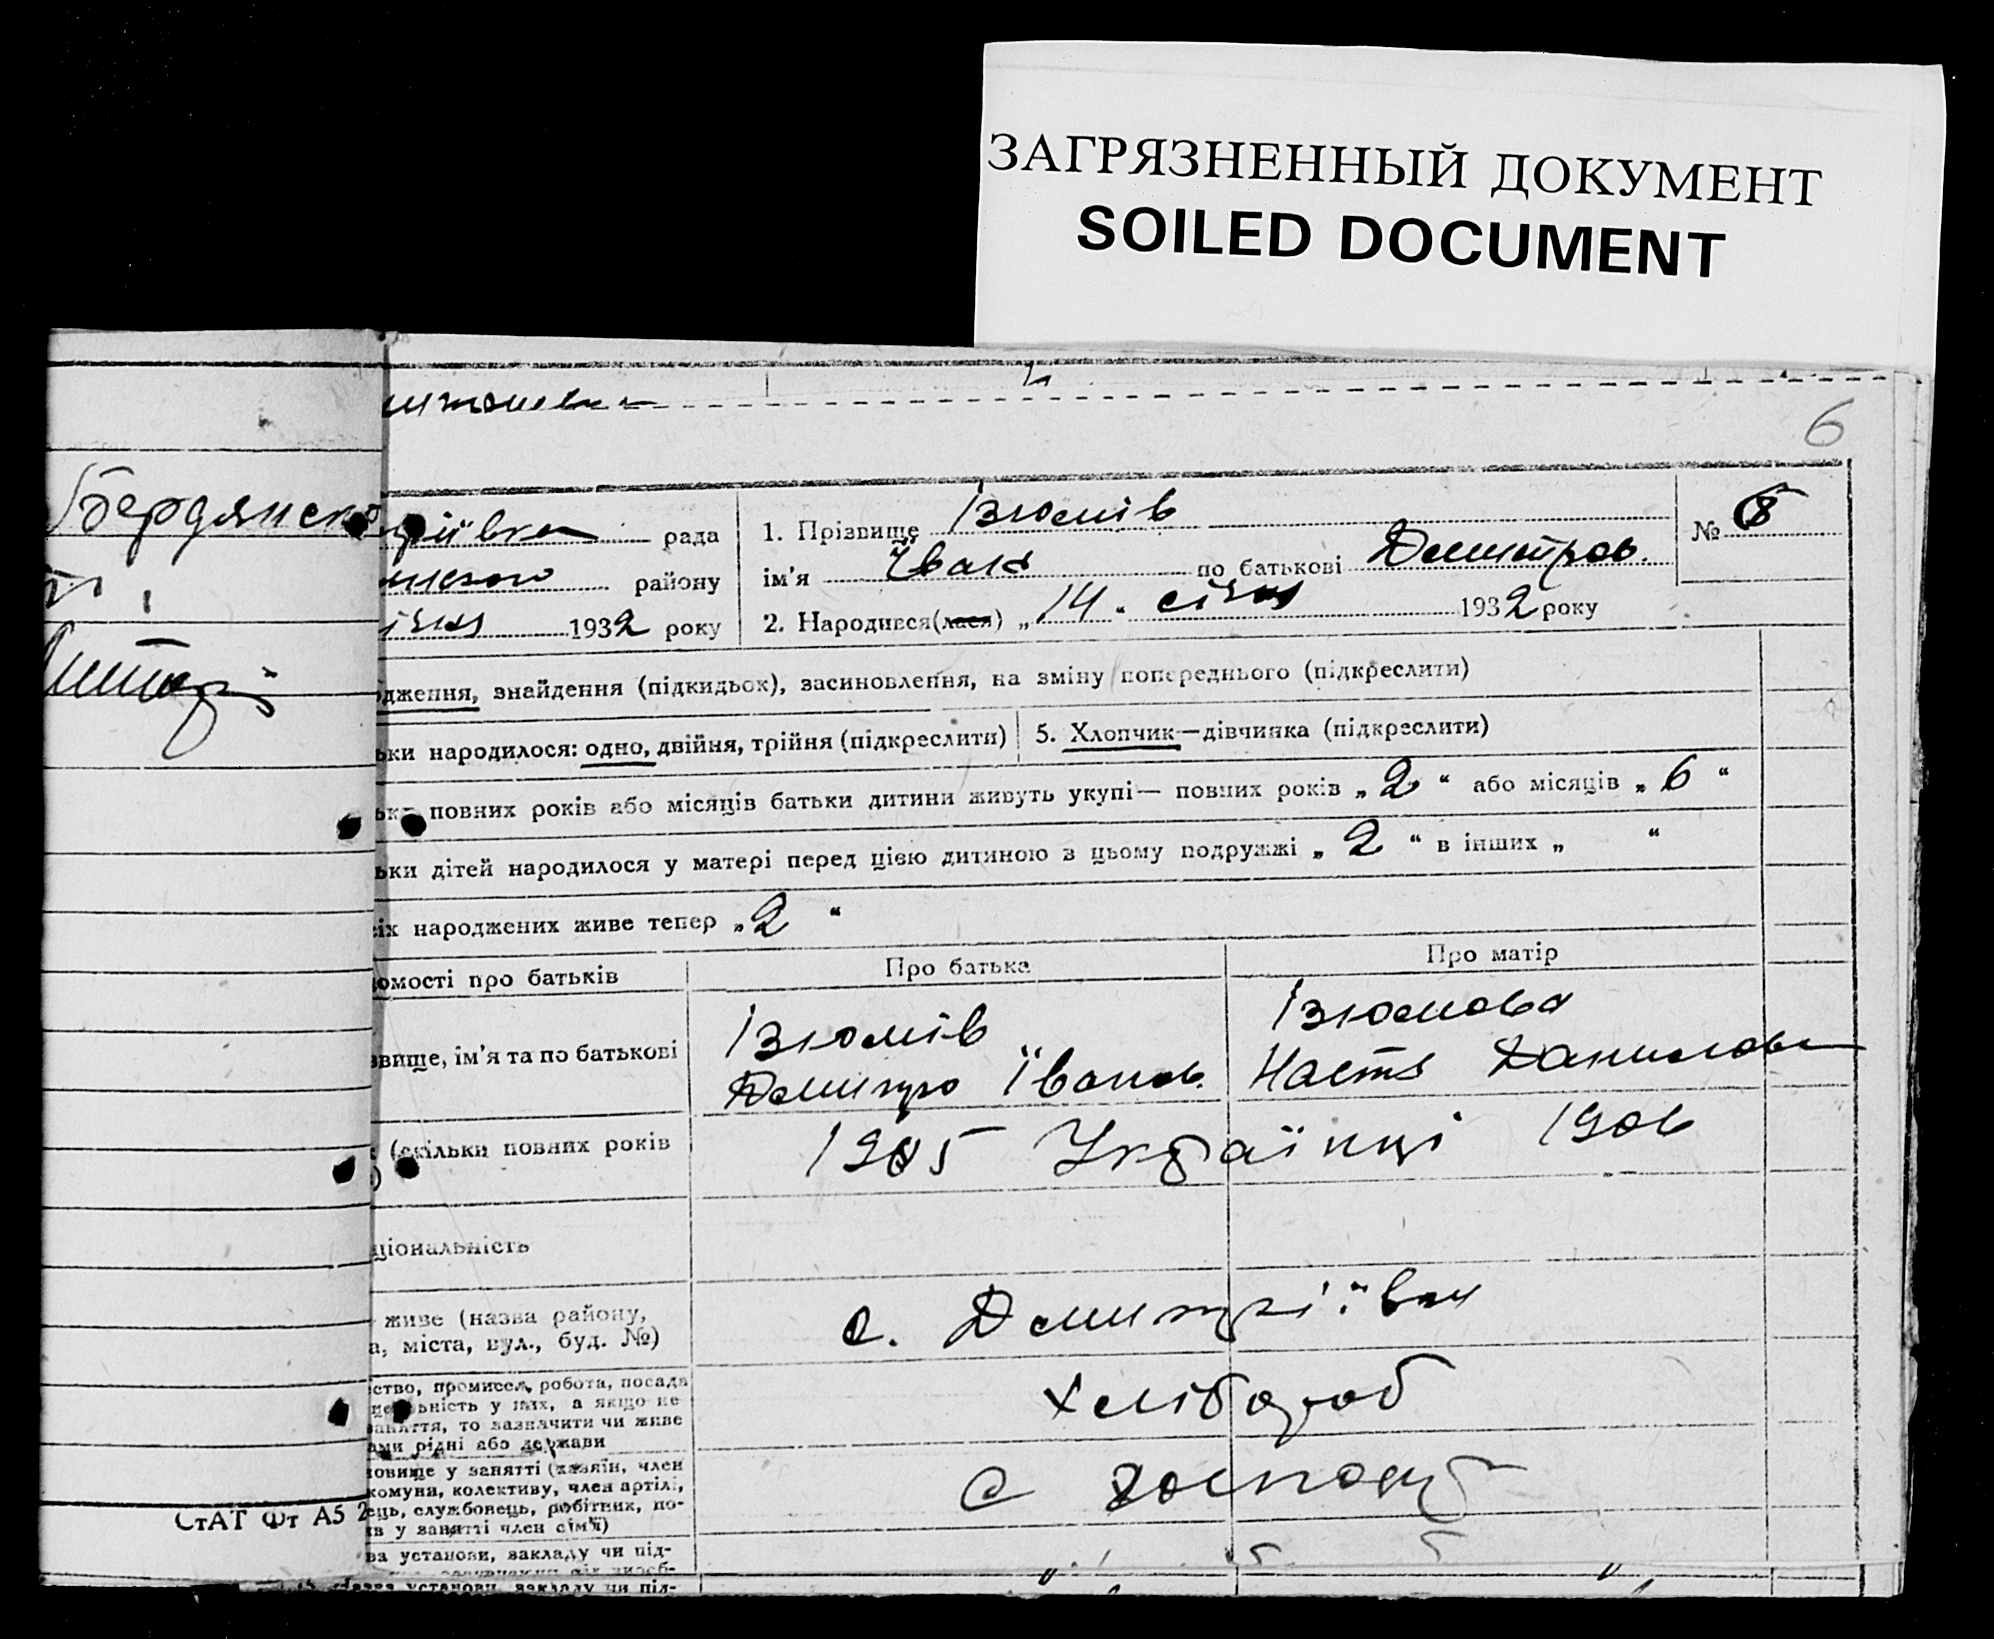 ЗАГРЯЗНЕННЫЙ ДОКУМЕНТ
SOILED DOCUMENT
6
Бердянско
СтАТ Фт А5 2
рада
району
1932 року
1. Прізвище Ізюмів
ім'я Іван по батькові Дмитров.
2. Народився(лася) „14" січня 1932 року
№ 8
дження, знайдення (підкидьок), засиновлення, на зміну попереднього (підкреслити)
ьки народилося: одно, двійня, трійня (підкреслити)
5. Хлопчик—дівчинка (підкреслити)
повних років або місяців батьки дитини живуть укупі— повних років „2" або місяців „6"
ьки дітей народилося у матері перед цією дитиною в цьому подружжі „2" в інших „ "
іх народжених живе тепер „2"
омості про батьків
Про батька
Про матір
звище, ім'я та по батькові
Ізюмів
Дмитро Іванов.
Ізюмова
Настя Данилова
(скільки повних років
1905 Українці 1906
ціональність
живе (назва району,
а, міста, вул., буд. №)
с. Дмитріївка
ство, промисел, робота, посада
ність у них, а якщо не
заняття, то зазначити чи живе
ами рідні або держави
Хлібороб
овище у занятті (хазяїн, член
комуни, колективу, член артілі,
ець, службовець, робітник, по-
ів у занятті член сім'ї)
ва установи, закладу чи під-
Назва установи, закладу чи під-